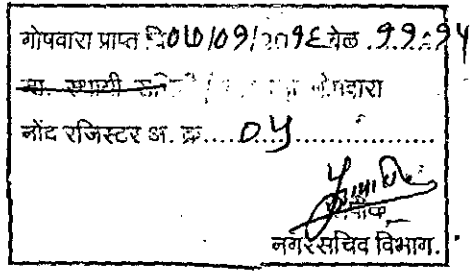 गोपवारा प्राप्त दि०७/०१/२०१६ वेळ .११:१५
स्थायी गोषवारा
नोंद रजिस्टर अ. क्र.....०५..................
नगरसचिव विभाग.